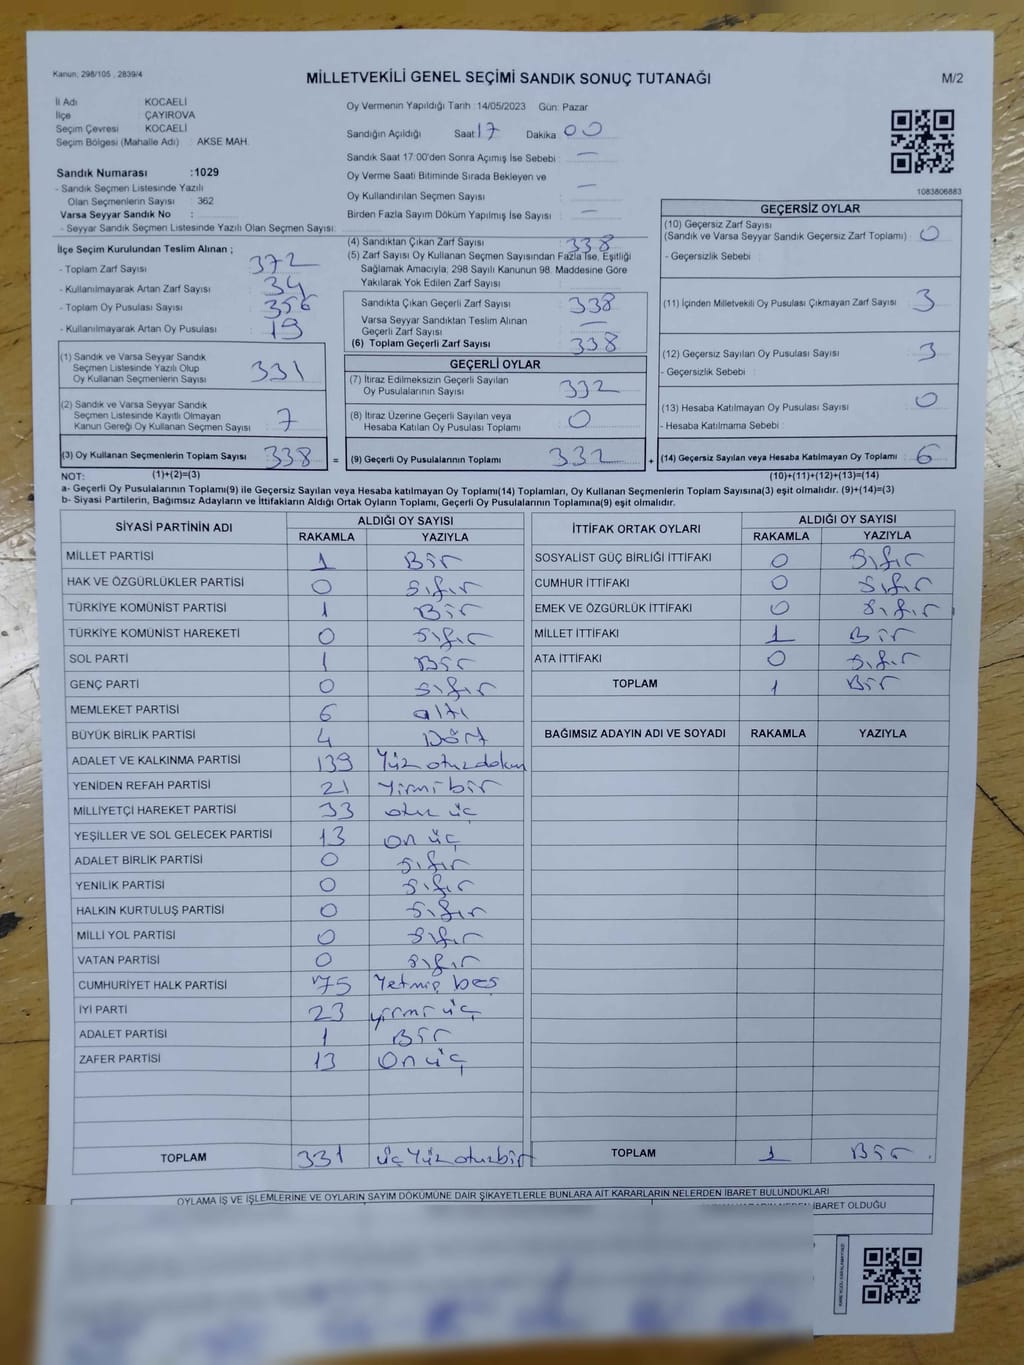 Kanun; 298/105 , 2839/4
MİLLETVEKİLİ GENEL SEÇİMİ SANDIK SONUÇ TUTANAĞI
M/2
İl Adı KOCAELİ
İlçe ÇAYIROVA
Seçim Çevresi KOCAELİ
Seçim Bölgesi (Mahalle Adı) : AKSE MAH.
Sandık Numarası :1029
- Sandık Seçmen Listesinde Yazılı
Olan Seçmenlerin Sayısı : 362
Varsa Seyyar Sandık No :
- Seyyar Sandık Seçmen Listesinde Yazılı Olan Seçmen Sayısı:
Oy Vermenin Yapıldığı Tarih : 14/05/2023 Gün: Pazar
Sandığın Açıldığı Saat 17 Dakika 00
Sandık Saat 17:00'den Sonra Açımış İse Sebebi : —
Oy Verme Saati Bitiminde Sırada Bekleyen ve
Oy Kullandırılan Seçmen Sayısı : —
Birden Fazla Sayım Döküm Yapılmış İse Sayısı : —
1083806883
İlçe Seçim Kurulundan Teslim Alınan ;
- Toplam Zarf Sayısı : 372
- Kullanılmayarak Artan Zarf Sayısı : 34
- Toplam Oy Pusulası Sayısı : 356
- Kullanılmayarak Artan Oy Pusulası : 19
(1) Sandık ve Varsa Seyyar Sandık
Seçmen Listesinde Yazılı Olup
Oy Kullanan Seçmenlerin Sayısı : 331
(2) Sandık ve Varsa Seyyar Sandık
Seçmen Listesinde Kayıtlı Olmayan
Kanun Gereği Oy Kullanan Seçmen Sayısı : 7
(3) Oy Kullanan Seçmenlerin Toplam Sayısı : 338 =
(4) Sandıktan Çıkan Zarf Sayısı : 338
(5) Zarf Sayısı Oy Kullanan Seçmen Sayısından Fazla İse, Eşitliği
Sağlamak Amacıyla; 298 Sayılı Kanunun 98. Maddesine Göre
Yakılarak Yok Edilen Zarf Sayısı :
Sandıkta Çıkan Geçerli Zarf Sayısı : 338
Varsa Seyyar Sandıktan Teslim Alınan
Geçerli Zarf Sayısı : —
(6) Toplam Geçerli Zarf Sayısı : 338
GEÇERLİ OYLAR
(7) İtiraz Edilmeksizin Geçerli Sayılan
Oy Pusulalarının Sayısı : 332
(8) İtiraz Üzerine Geçerli Sayılan veya
Hesaba Katılan Oy Pusulası Toplamı : 0
(9) Geçerli Oy Pusulalarının Toplamı : 332 +
GEÇERSİZ OYLAR
(10) Geçersiz Zarf Sayısı
(Sandık ve Varsa Seyyar Sandık Geçersiz Zarf Toplamı) : 0
- Geçersizlik Sebebi :
(11) İçinden Milletvekili Oy Pusulası Çıkmayan Zarf Sayısı : 3
(12) Geçersiz Sayılan Oy Pusulası Sayısı : 3
- Geçersizlik Sebebi :
(13) Hesaba Katılmayan Oy Pusulası Sayısı : 0
- Hesaba Katılmama Sebebi :
(14) Geçersiz Sayılan veya Hesaba Katılmayan Oy Toplamı : 6
NOT: (1)+(2)=(3) (10)+(11)+(12)+(13)=(14)
a- Geçerli Oy Pusulalarının Toplamı(9) ile Geçersiz Sayılan veya Hesaba katılmayan Oy Toplamı(14) Toplamları, Oy Kullanan Seçmenlerin Toplam Sayısına(3) eşit olmalıdır. (9)+(14)=(3)
b- Siyasi Partilerin, Bağımsız Adayların ve İttifakların Aldığı Ortak Oyların Toplamı, Geçerli Oy Pusulalarının Toplamına(9) eşit olmalıdır.
SİYASİ PARTİNİN ADI ALDIĞI OY SAYISI
RAKAMLA YAZIYLA
MİLLET PARTİSİ 1 Bir
HAK VE ÖZGÜRLÜKLER PARTİSİ 0 sıfır
TÜRKİYE KOMÜNİST PARTİSİ 1 Bir
TÜRKİYE KOMÜNİST HAREKETİ 0 sıfır
SOL PARTİ 1 Bir
GENÇ PARTİ 0 sıfır
MEMLEKET PARTİSİ 6 altı
BÜYÜK BİRLİK PARTİSİ 4 Dört
ADALET VE KALKINMA PARTİSİ 139 Yüz otuzdokuz
YENİDEN REFAH PARTİSİ 21 Yirmi bir
MİLLİYETÇİ HAREKET PARTİSİ 33 otuz üç
YEŞİLLER VE SOL GELECEK PARTİSİ 13 on üç
ADALET BİRLİK PARTİSİ 0 sıfır
YENİLİK PARTİSİ 0 sıfır
HALKIN KURTULUŞ PARTİSİ 0 sıfır
MİLLİ YOL PARTİSİ 0 sıfır
VATAN PARTİSİ 0 sıfır
CUMHURİYET HALK PARTİSİ 75 Yetmiş beş
İYİ PARTİ 23 yirmi üç
ADALET PARTİSİ 1 Bir
ZAFER PARTİSİ 13 On üç
TOPLAM 331 üç Yüz otuzbir
İTTİFAK ORTAK OYLARI ALDIĞI OY SAYISI
RAKAMLA YAZIYLA
SOSYALİST GÜÇ BİRLİĞİ İTTİFAKI 0 sıfır
CUMHUR İTTİFAKI 0 sıfır
EMEK VE ÖZGÜRLÜK İTTİFAKI 0 sıfır
MİLLET İTTİFAKI 1 Bir
ATA İTTİFAKI 0 sıfır
TOPLAM 1 Bir
BAĞIMSIZ ADAYIN ADI VE SOYADI RAKAMLA YAZIYLA
TOPLAM 1 Bir
OYLAMA İŞ VE İŞLEMLERİNE VE OYLARIN SAYIM DÖKÜMÜNE DAİR ŞİKAYETLERLE BUNLARA AİT KARARLARIN NELERDEN İBARET BULUNDUKLARI
İBARET OLDUĞU